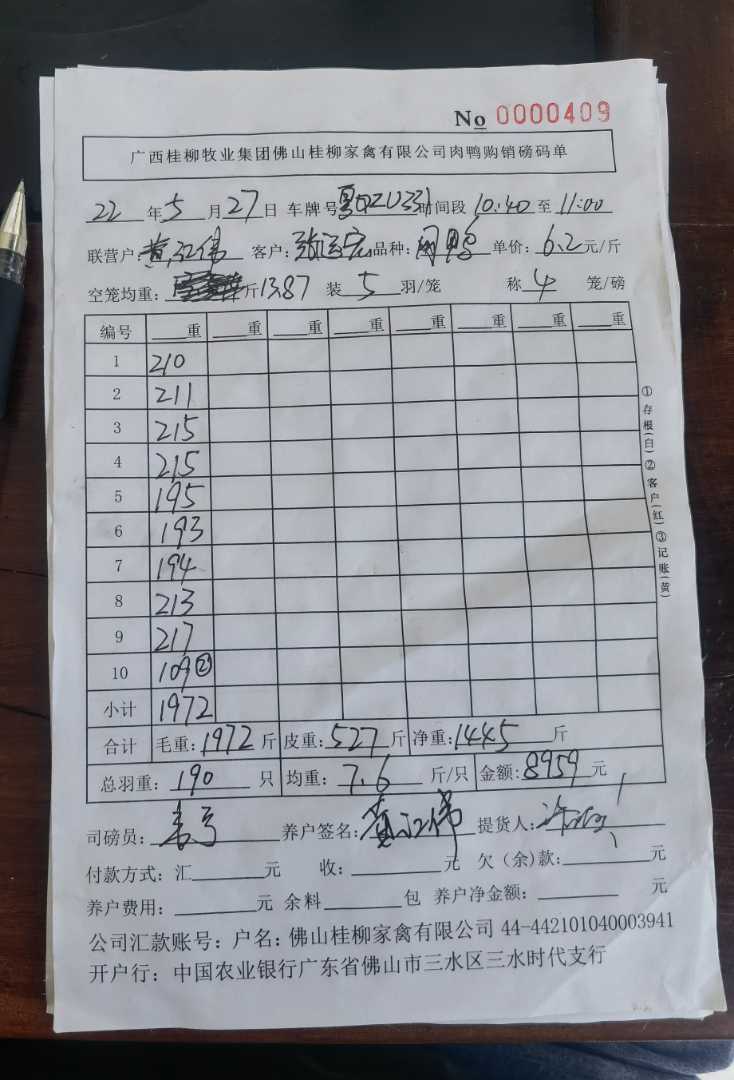 No 0000409
广西桂柳牧业集团佛山桂柳家禽有限公司肉鸭购销磅码单
22 年 5 月 27 日 车牌号 时间段 10:40 至 11:00
联营户: 黄江伟 客户: 品种: 肉鸭 单价: 6.2 元/斤
空笼均重: 斤 13.87 装 5 羽/笼 称 4 笼/磅
编号 重 重 重 重 重 重 重 重
1 210
2 211
3 215
4 215
5 195
6 193
7 194
8 213
9 217
10 109②
小计 1972
合计 毛重: 1972 斤 皮重: 527 斤 净重: 1445 斤
总羽重: 190 只 均重: 7.6 斤/只 金额: 8959 元
司磅员: 养户签名: 黄江伟 提货人:
付款方式: 汇 元 收: 元 欠(余)款: 元
养户费用: 元 余料 包 养户净金额: 元
公司汇款账号: 户名: 佛山桂柳家禽有限公司 44-442101040003941
开户行: 中国农业银行广东省佛山市三水区三水时代支行
①存根(白)②客户(红)③记账(黄)